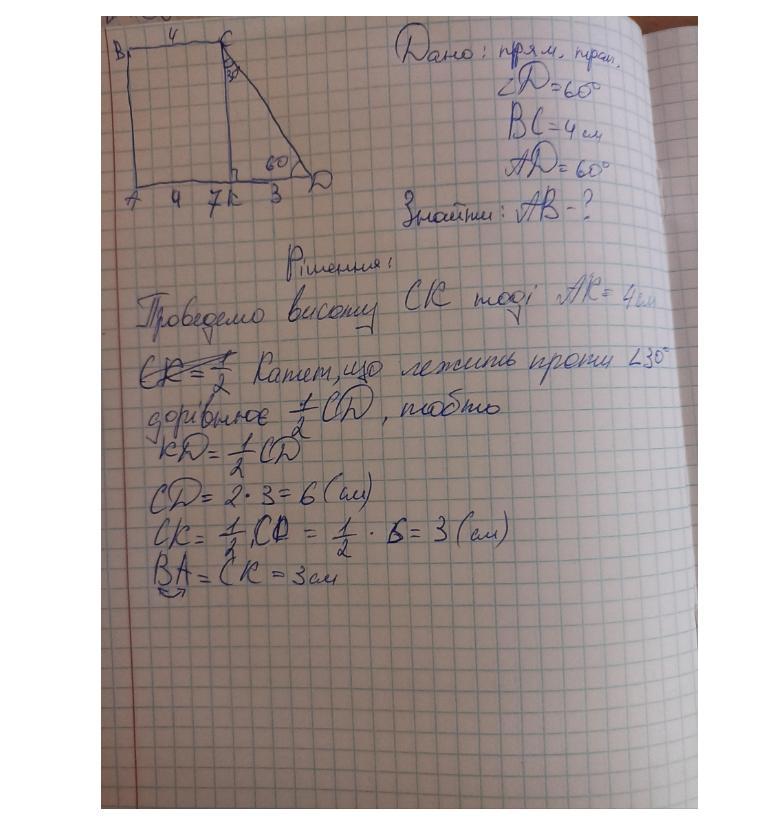 B 4 C
30
60
A 4 7 K 3 D
Дано: прям. трап.
∠D=60°
BC=4см
AD=60°
Знайти: AB-?
Рішення:
Проведемо висоту CK тоді AK=4см
CK=1/2 Катет, що лежить проти ∠30°
дорівнює 1/2 CD, тобто
KD=1/2 CD
CD=2·3=6(см)
CK=1/2 CD=1/2·6=3(см)
BA=CK=3см